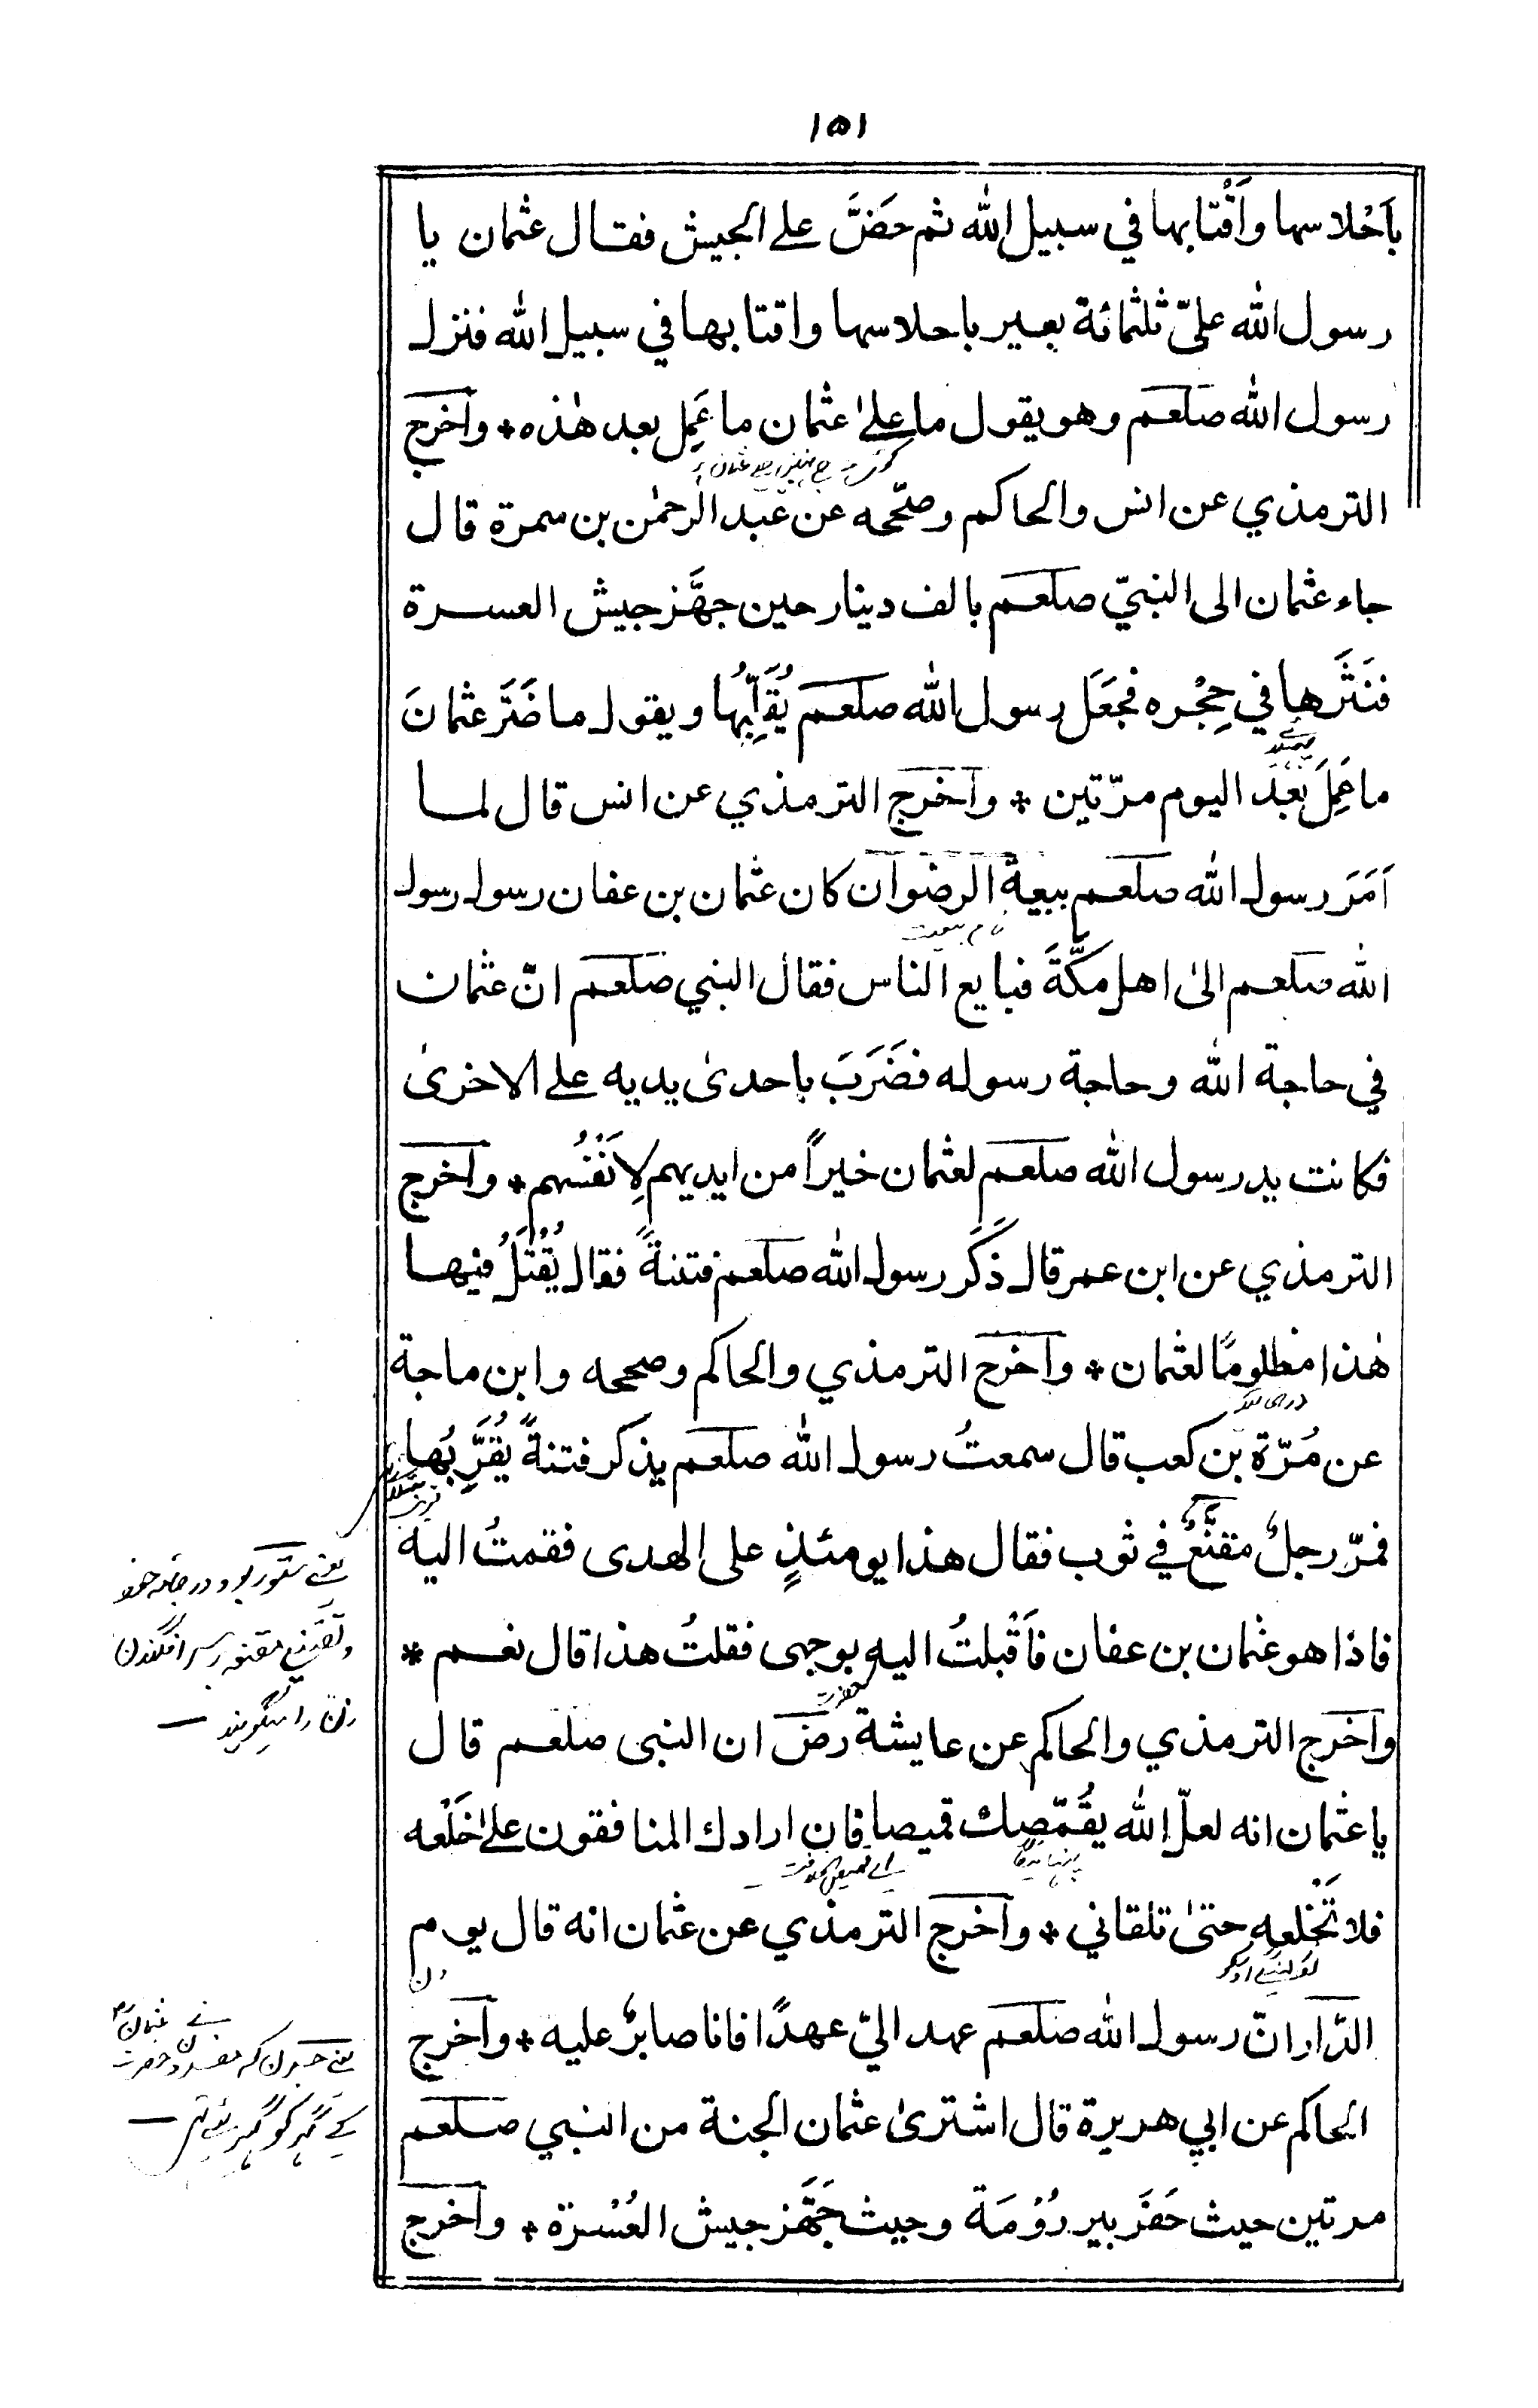 ١٥١
بأَحْلاسها وأَقْتابها في سبيل الله ثم حَضَّ على الجيش فقال عثمان يا
رسول الله عليّ ثلثمائة بعير باحلاسها واقتابها في سبيل الله فنزل
رسول الله صلعم وهو يقول ما علىٰ عثمان ما عَمِل بعد هٰذه * وأخرج
الترمذي عن انس والحاكم وصحّحه عن عبد الرحمٰن بن سمرة قال
جاء عثمان الى النبيّ صلعم بالف دينار حين جهَّز جيش العسرة
فنَثَرها في حِجْره فجعَل رسول الله صلعم يُقَلِّبُها ويقول ما ضَرَّ عثمانَ
ما عَمِلَ بَعْدَ اليوم مرّتين * وأخرج الترمذي عن انس قال لما
اَمَرَ رسول الله صلعم ببيعة الرضوان كان عثمان بن عفان رسول رسول
الله صلعم الىٰ اهل مكَّةَ فبايع الناس فقال النبي صلعم انّ عثمان
في حاجة الله وحاجة رسوله فضَرَبَ باحدىٰ يديه على الاخرىٰ
فكانت يد رسول الله صلعم لعثمان خيراً من ايديهم لِاَنْفُسهم * وأخرج
الترمذي عن ابن عمر قال ذَكَر رسول الله صلعم فتنةً فقال يُقْتَلُ فيها
هٰذا مظلومًا لعثمان * وأخرج الترمذي والحاكم وصححه وابن ماجة
عن مُرّة بن كعب قال سمعتُ رسول الله صلعم يذكر فتنةً يُقَرِّبُها
فمرّ رجلٌ مقنَّعٌ في ثوب فقال هذا يومئذٍ على الهدى فقمتُ اليه
فاذا هو عثمان بن عفان فأَقْبلتُ اليه بوجهى فقلتُ هذا قال نعم *
وأخرج الترمذي والحاكم عن عايشة رضؓ ان النبى صلعم قال
يا عثمان انه لعلّ الله يقُمّصك قميصا فان ارادك المنافقون علىٰ خَلْعه
فلا تَخْلعه حتىٰ تلقاني * وأخرج الترمذي عن عثمان انه قال يوم
الدّار انّ رسول الله صلعم عهد اليّ عهدًا فانا صابرٌ عليه * وأخرج
الحاكم عن ابي هريرة قال اشترىٰ عثمان الجنة من النبي صلعم
مرتين حيث حَفَر بير رُوْمَة وحيث جَهَّز جيش العُسْرة * وأخرج